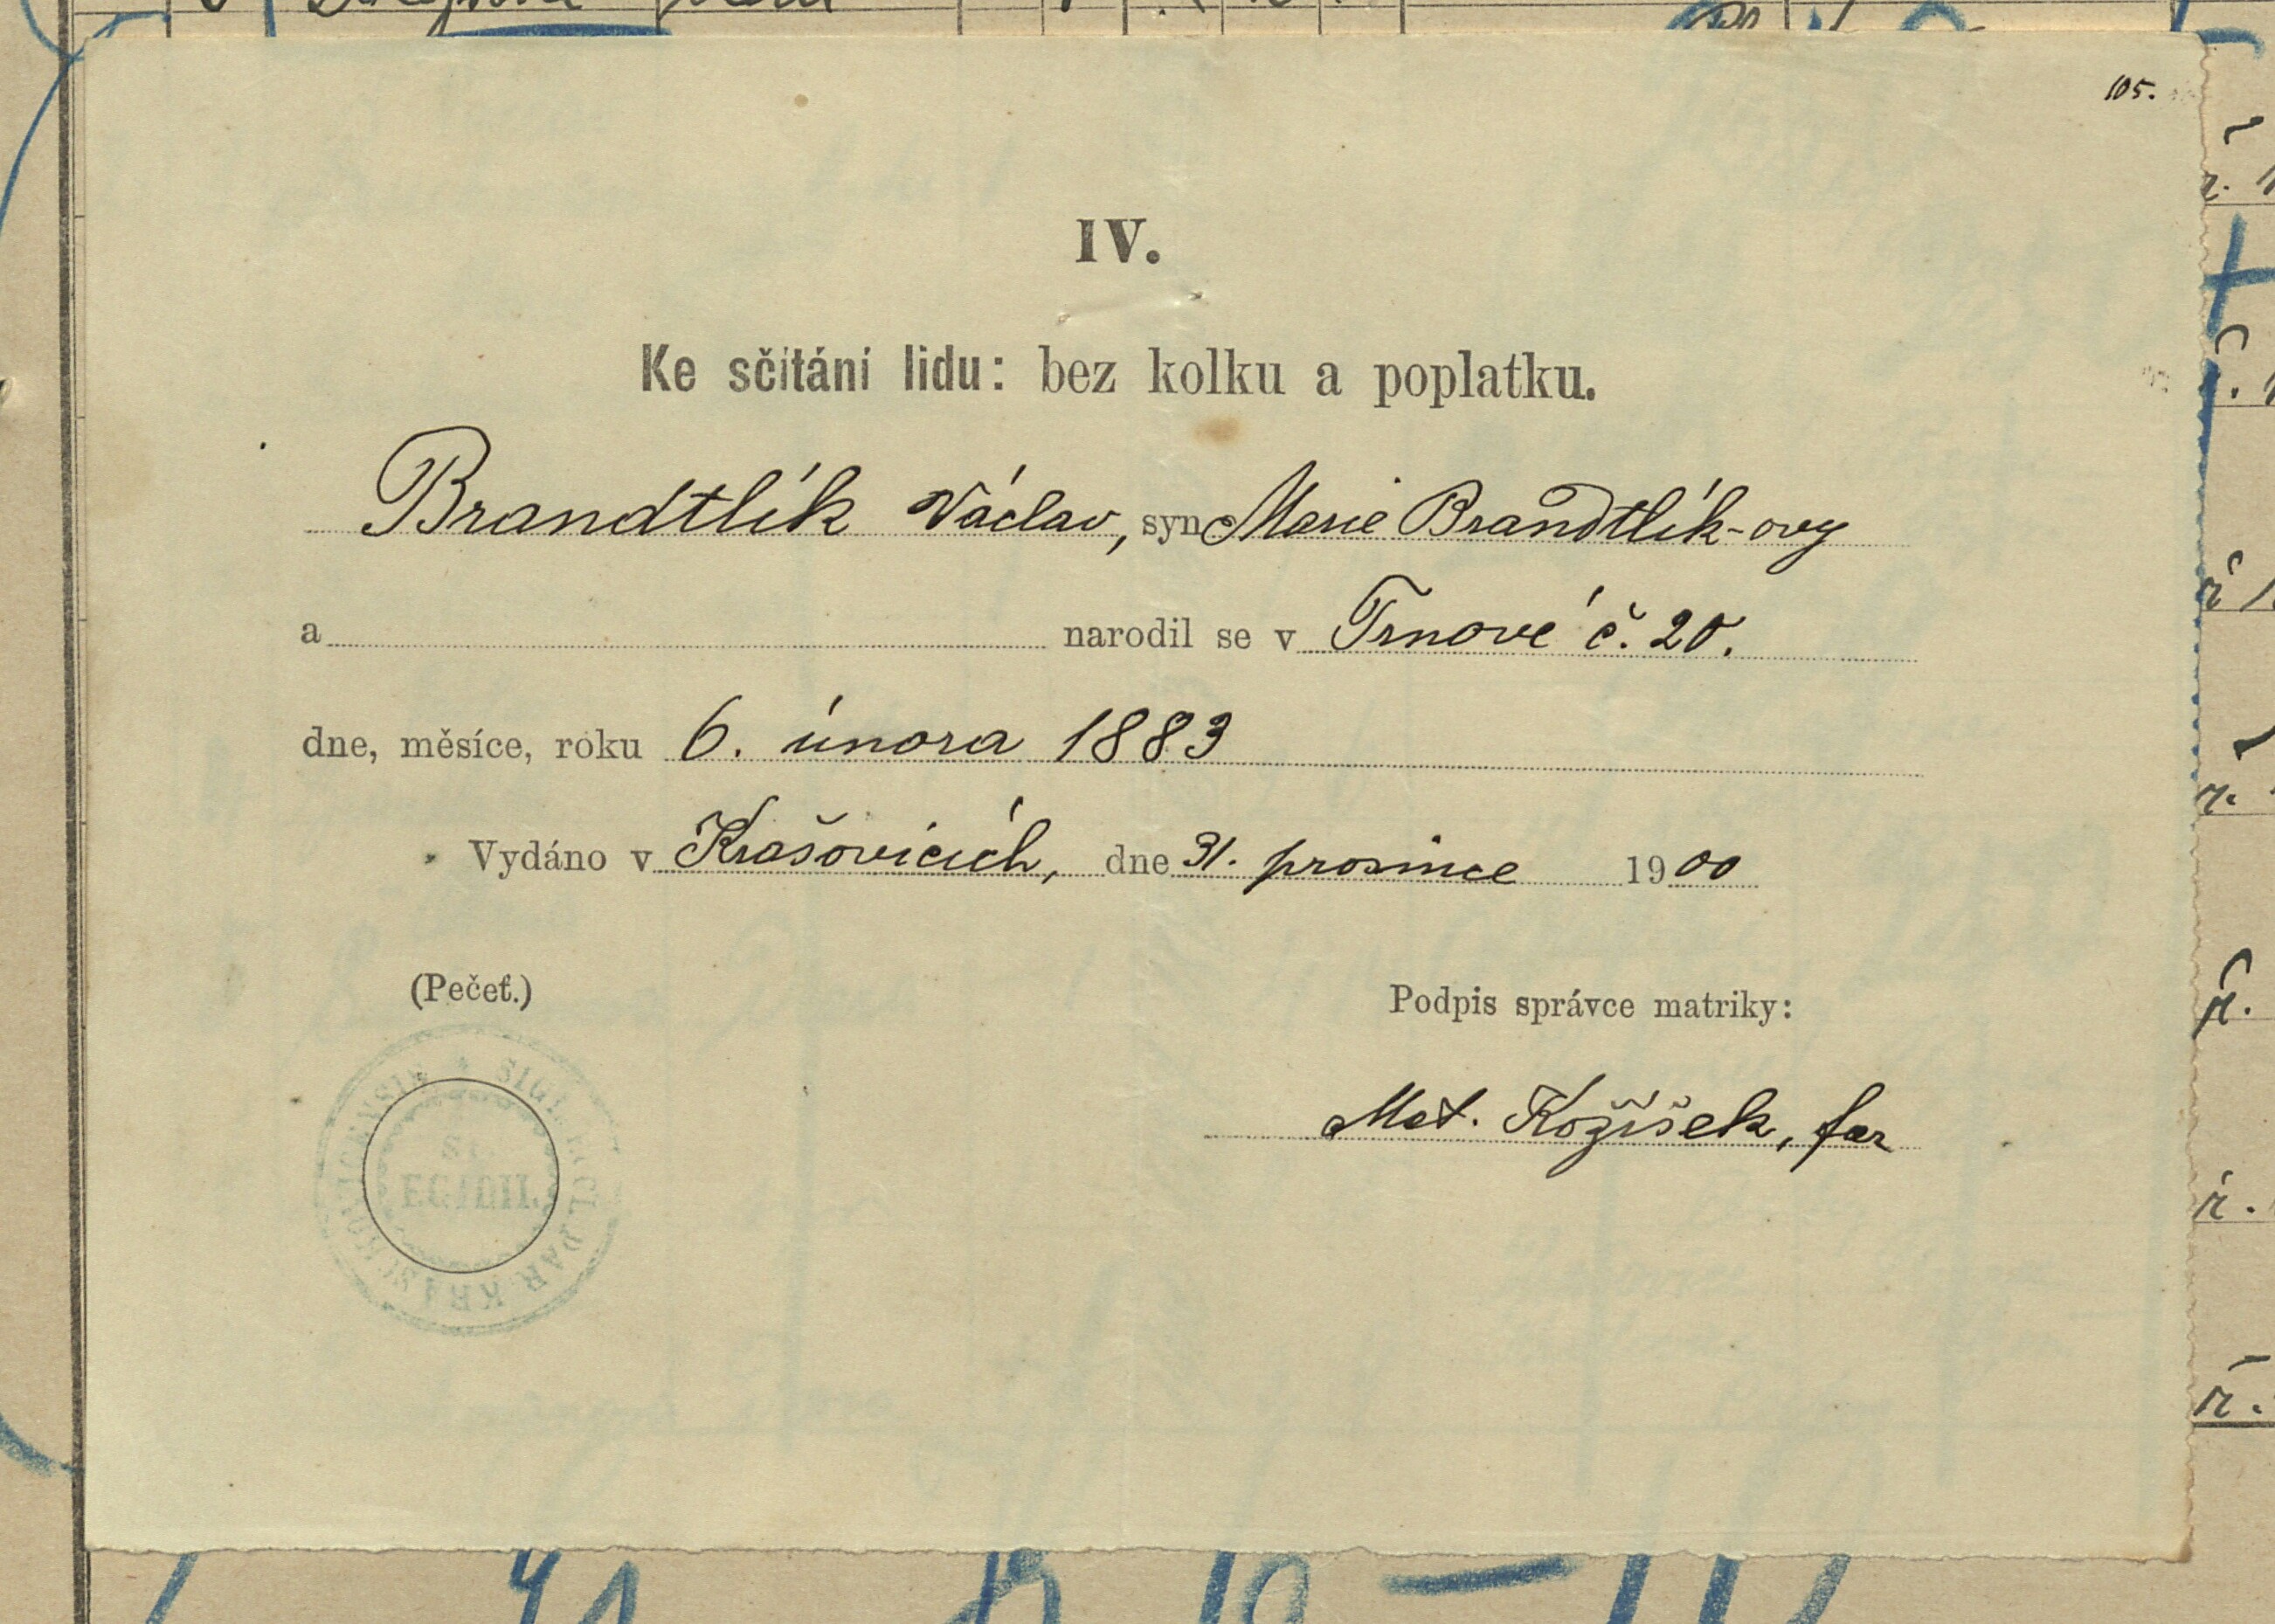 105.
IV.
Ke sčítání lidu: bez kolku a poplatku.
Brandtlík Václav, syn Marie Brandtlík-ovy
a narodil se v Trnové č. 20.
dne, měsíce, roku 6. února 1883
Vydáno v Krašovicích, dne 31. prosince 1900
(Pečeť.)
Podpis správce matriky:
Mat. Kožíšek, far
St.
EGIDII.